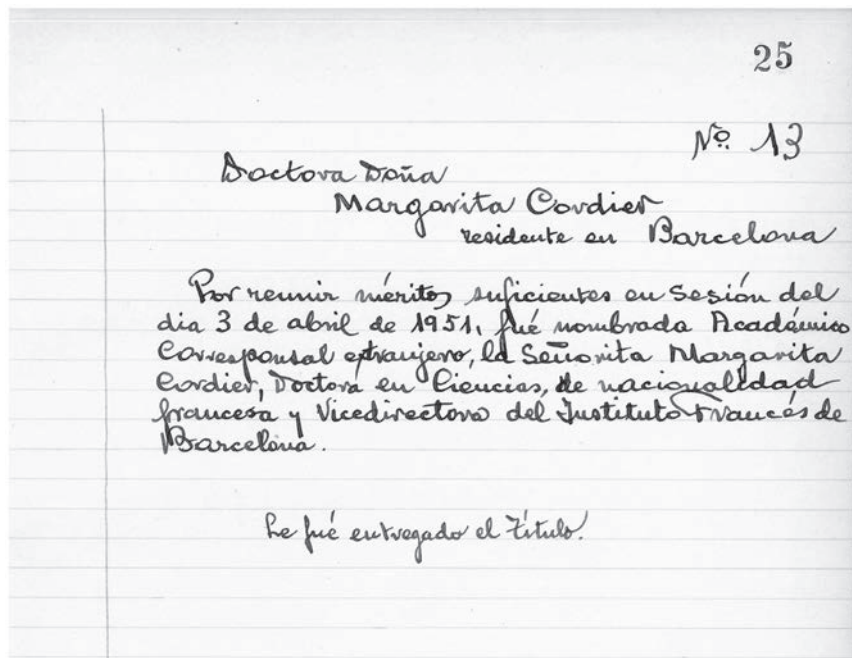 25
Nº 13
Doctora Doña
Margarita Cordier
residente en Barcelona
Por reunir méritos suficientes en Sesión del
dia 3 de abril de 1951, fué nombrada Académico
Corresponsal extranjero, la Señorita Margarita
Cordier, Doctora en Ciencias, de nacionalidad
francesa y Vicedirectora del Instituto Francés de
Barcelona.
Le fué entregado el Título.